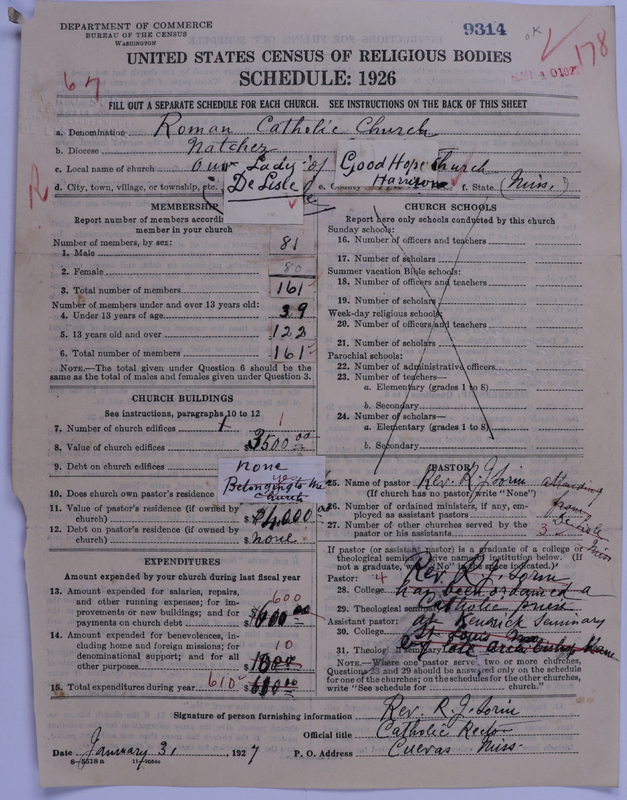 DEPARTMENT OF COMMERCE
BUREAU OF THE CENSUS
WASHINGTON
9314
OK
178
67
UNITED STATES CENSUS OF RELIGIOUS BODIES
SCHEDULE: 1926
FILL OUT A SEPARATE SCHEDULE FOR EACH CHURCH. SEE INSTRUCTIONS ON THE BACK OF THIS SHEET
a. Denomination Roman Catholic Church
b. Diocese Natchez
c. Local name of church Our Lady of Good Hope Church
d. City, town, village, or township, etc. De Lisle e. County Harrison f. State (Miss.)
R
MEMBERSHIP
Report number of members accordi
member in your church
Number of members, by sex:
1. Male 81
2. Female 80
3. Total number of members 161
Number of members under and over 13 years old:
4. Under 13 years of age 39
5. 13 years old and over 122
6. Total number of members 161
NOTE.—The total given under Question 6 should be the
same as the total of males and females given under Question 3.
CHURCH BUILDINGS
See instructions, paragraphs 10 to 12
7. Number of church edifices 1
8. Value of church edifices $3500.00
9. Debt on church edifices none
10. Does church own pastor's residence Belonging to the church yes
11. Value of pastor's residence (if owned by
church) $4000.00
12. Debt on pastor's residence (if owned by
church) $ none
EXPENDITURES
Amount expended by your church during last fiscal year
13. Amount expended for salaries, repairs,
and other running expenses; for im-
provements or new buildings; and for
payments on church debt $ 600
14. Amount expended for benevolences, in-
cluding home and foreign missions; for
denominational support; and for all
other purposes 10
15. Total expenditures during year 610
CHURCH SCHOOLS
Report here only schools conducted by this church
Sunday schools:
16. Number of officers and teachers
17. Number of scholars
Summer vacation Bible schools:
18. Number of officers and teachers
19. Number of scholars
Week-day religious schools:
20. Number of officers and teachers
21. Number of scholars
Parochial schools:
22. Number of administrative officers
23. Number of teachers—
a. Elementary (grades 1 to 8)
b. Secondary
24. Number of scholars—
a. Elementary (grades 1 to 8)
b. Secondary
PASTOR
25. Name of pastor Rev. R. J. Sorin attending from De Lisle Miss
(If church has no pastor, write "None")
26. Number of ordained ministers, if any, em-
ployed as assistant pastors
27. Number of other churches served by the
pastor or his assistants 3
If pastor (or assistant pastor) is a graduate of a college or
theological seminary, give name of institution below. (If
not a graduate, write "No" in the space indicated.)
Pastor: 4 Rev. R. J. Sorin
28. College has been ordained a
29. Theological seminary Catholic priest
Assistant pastor: at Kenrick Seminary
30. College St Louis Mo
31. Theological seminary
NOTE.—Where one pastor serves two or more churches,
Questions 28 and 29 should be answered only on the schedule
for one of the churches; on the schedules for the other churches,
write "See schedule for church."
Signature of person furnishing information Rev. R. J. Sorin
Official title Catholic Rector
Date January 31, 1927 P. O. Address Cuevas Miss.
8-5518 a